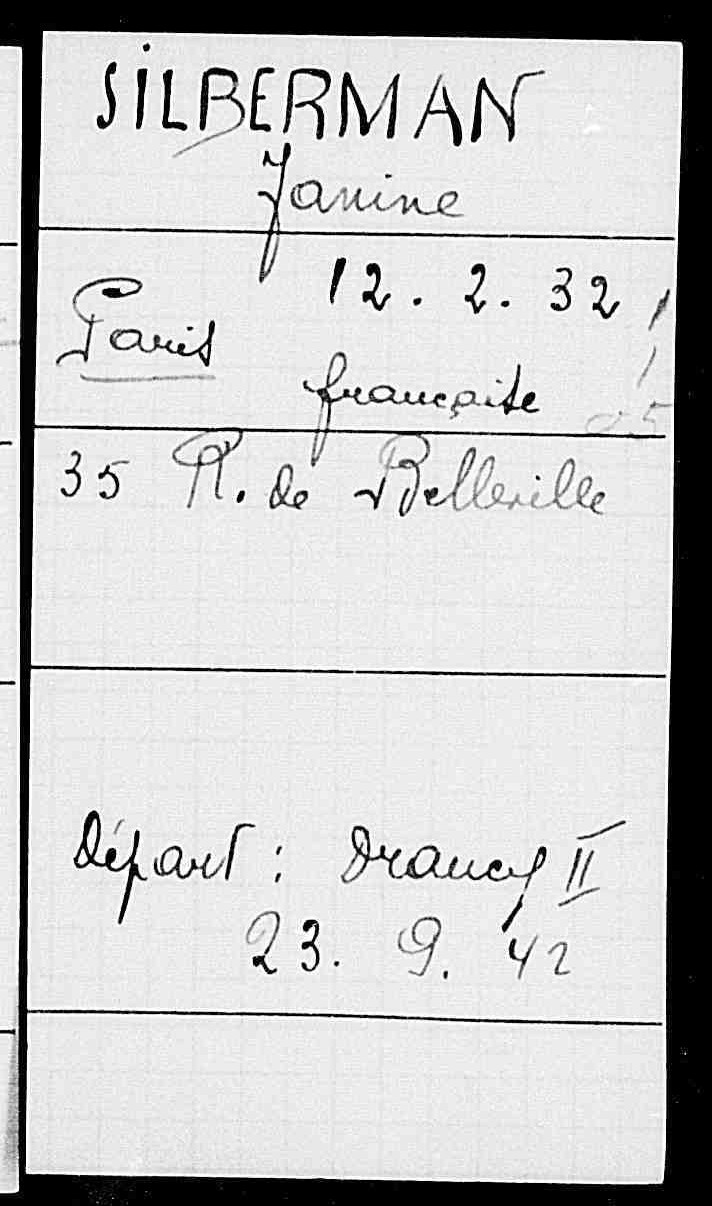 SILBERMAN
Janine
12. 2. 32
Paris
française
35 R. de Belleville
départ : Drancy II
23. 9. 42